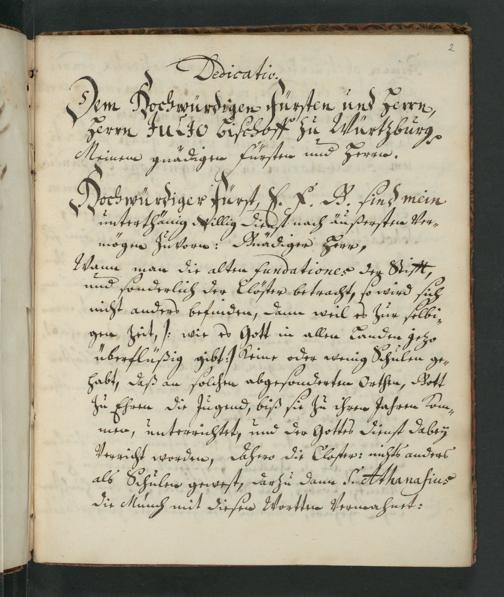 2
Dedicatio.
Dem Hochwürdigen Fürsten und Herrn,
Herrn Julio Bischoff zu Würtzburg,
Meinem gnädigen Fürsten und Herrn.
Hochwürdiger Fürst, E. F. G. sind mein
unterthänig willig dienst nach äußersten Ver-
mögen zuvorn: Gnädiger Herr,
Wann man die alten fundationes der Stifft,
und sonderlich der Clöster betracht, so wird sich
nicht anders befinden, dann weil es zur selbi-
gen Zeit, /: wie es Gott in allen Landen jezo
überflüßig gibt :/ Keine oder wenig Schulen ge-
habt, daß an solchen abgesonderten Orthen, Gott
zu Ehren die Jugend, biß sie zu ihren Jahren kom-
men, unterrichtet, und der Gottes dienst dabeÿ
verricht worden, dahero die Clöster: nichts anders
als Schulen gewest, darzu dann S. Athanasius
die Münch mit diesen Wortten Vermahnet: